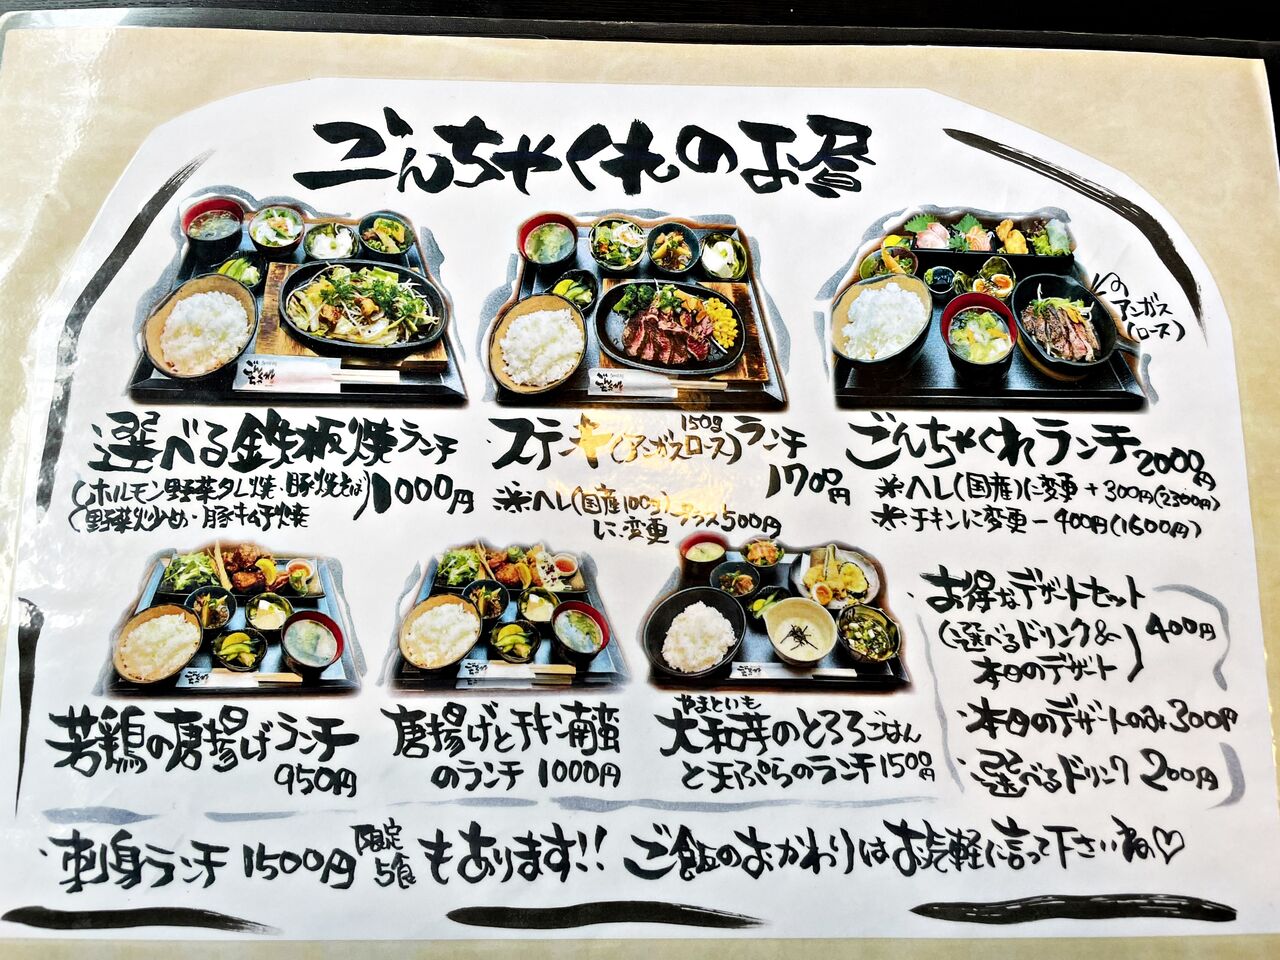 ごんちゃくれのお昼
のアンガス
(ロース)
選べる鉄板焼ランチ
(ホルモン野菜タレ焼・豚焼そば)
(野菜炒め・豚キムチ焼
1000円
・ステーキ(アンガスロース)150gランチ
1700円
※ヘレ(国産100g)プラス500円
に変更
ごんちゃくれランチ2000円
※ヘレ(国産)に変更 +300円(2300円)
※チキンに変更 -400円(1600円)
若鶏の唐揚げランチ
950円
唐揚げとチキン南蛮
のランチ 1000円
やまといも
大和芋のとろろごはん
と天ぷらのランチ1500円
お得なデザートセット
(選べるドリンク&
本日のデザート)
400円
・本日のデザートのみ300円
・選べるドリンク 200円
・刺身ランチ 1500円 限定5食 もあります!! ご飯のおかわりはお気軽に言って下さいね♡